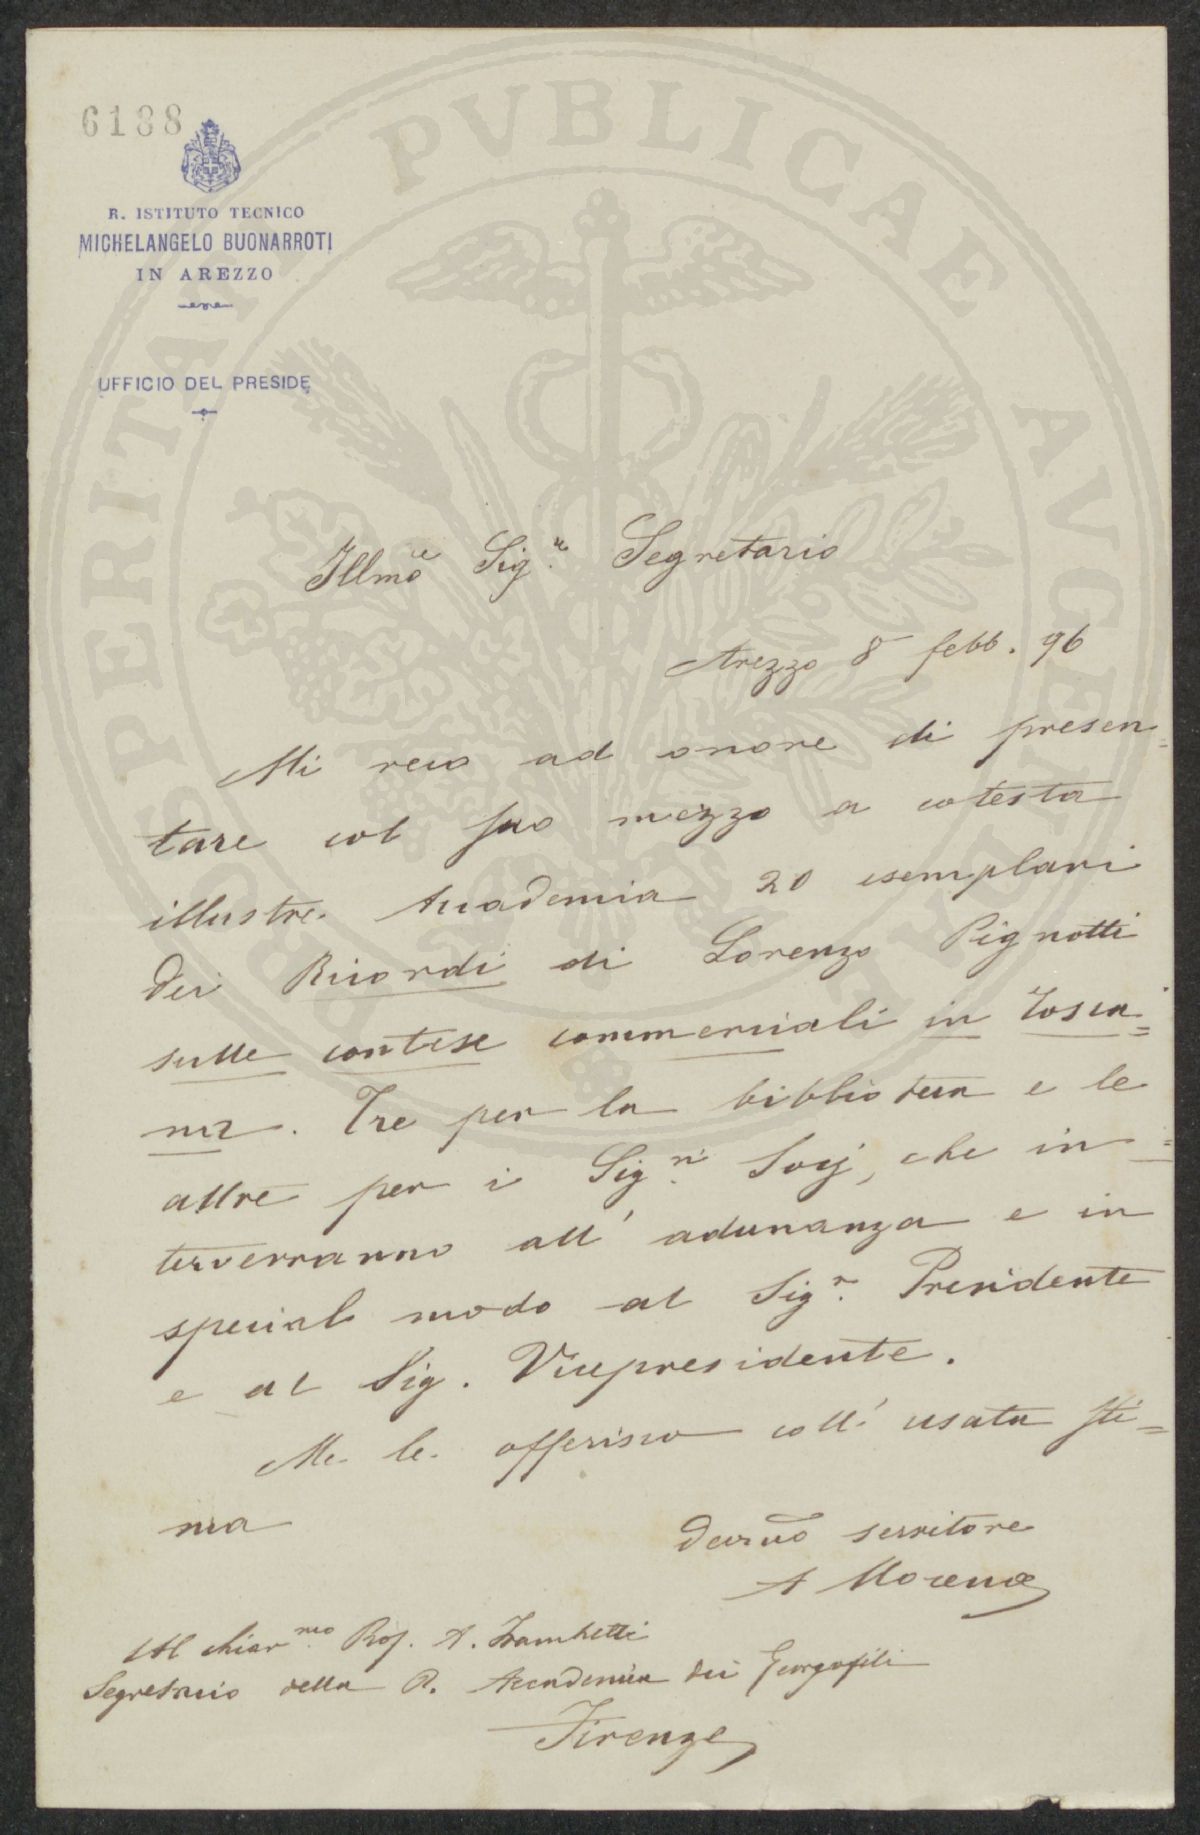 6188
R. ISTITUTO TECNICO
MICHELANGELO BUONARROTI
IN AREZZO
UFFICIO DEL PRESIDE
PROSPERITATI PVBLICAE AVGENDAE
Illmo Sig.r Segretario
Arezzo 8 febb. 96
Mi reco ad onore di presen=
tare col suo mezzo a cotesta
illustre Accademia 20 esemplari
dei Ricordi di Lorenzo Pignotti
sulle contese commerciali in Tosca=
na. Tre per la biblioteca e le
altre per i Sig.ri Socj, che in=
terverranno all' adunanza e in
special modo al Sig.r Presidente
e al Sig. Vicepresidente.
Me le offerisco coll' usata sti=
ma
servitore
A
Al Chiar.mo Prof. A.
Segretario della R. Accademia dei Georgofili
Firenze